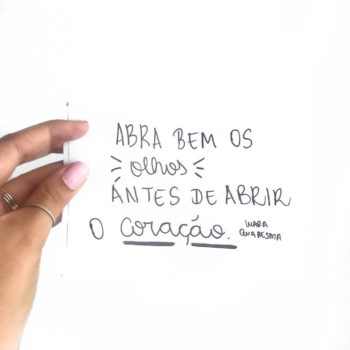 ABRA BEM OS
olhos
ANTES DE ABRIR
O coração.
IUARA
QUARESMA